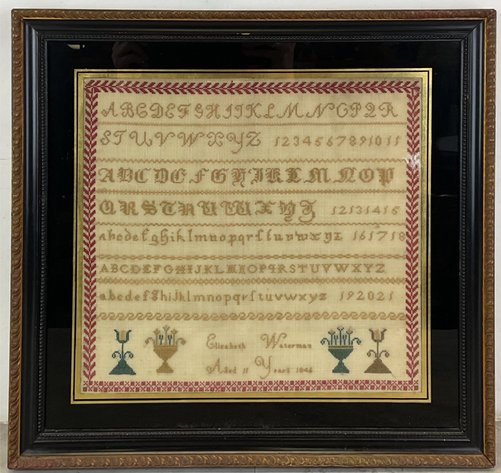 ABCDEFGHIJKLMNOPQR
STUVWXYZ 1234567891011
ABCDEFGHIJKLMNOP
QRSTUVWXYZ 12131415
abcdefghiklmnopqrſtuvwxyz 161718
ABCDEFGHIJKLMNOPQRSTUVWXYZ
abcdefghijklmnopqrſtuvwxyz 192021
Elizabeth Waterman
Aged 11 Years 1846